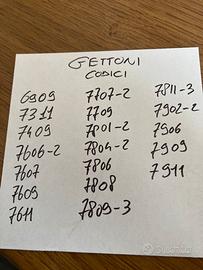 GETTONI
CODICI
6909
7311
7409
7606-2
7607
7609
7611
7707-2
7709
7801-2
7804-2
7806
7808
7809-3
7811-3
7902-2
7906
7909
7911